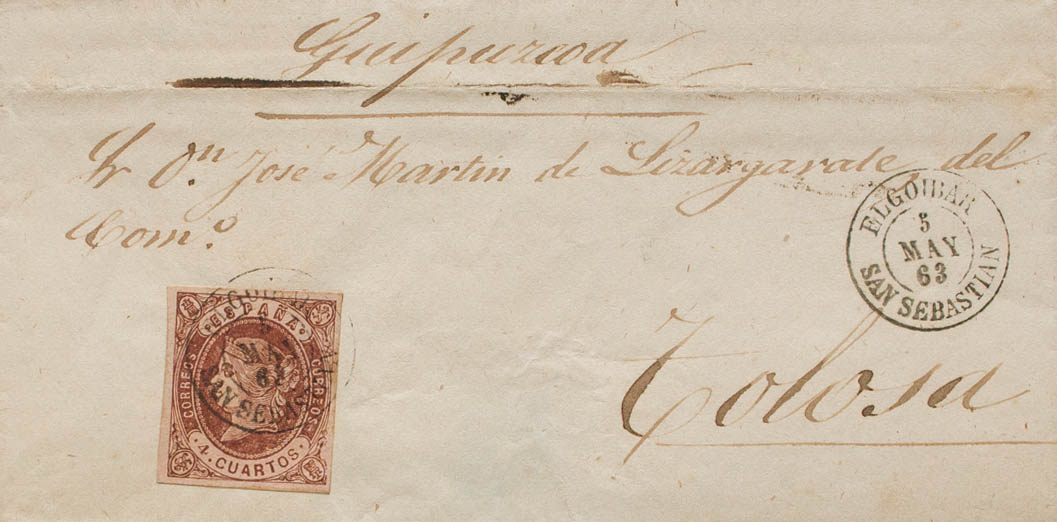 Guipuzcoa
Sr Dn. José Martin de Lizargarate, del
Com.o
ELGOIBAR
5
MAY
63
SAN SEBASTIAN
ESPAÑA
CORREOS
CORREOS
4 CUARTOS.
Tolosa